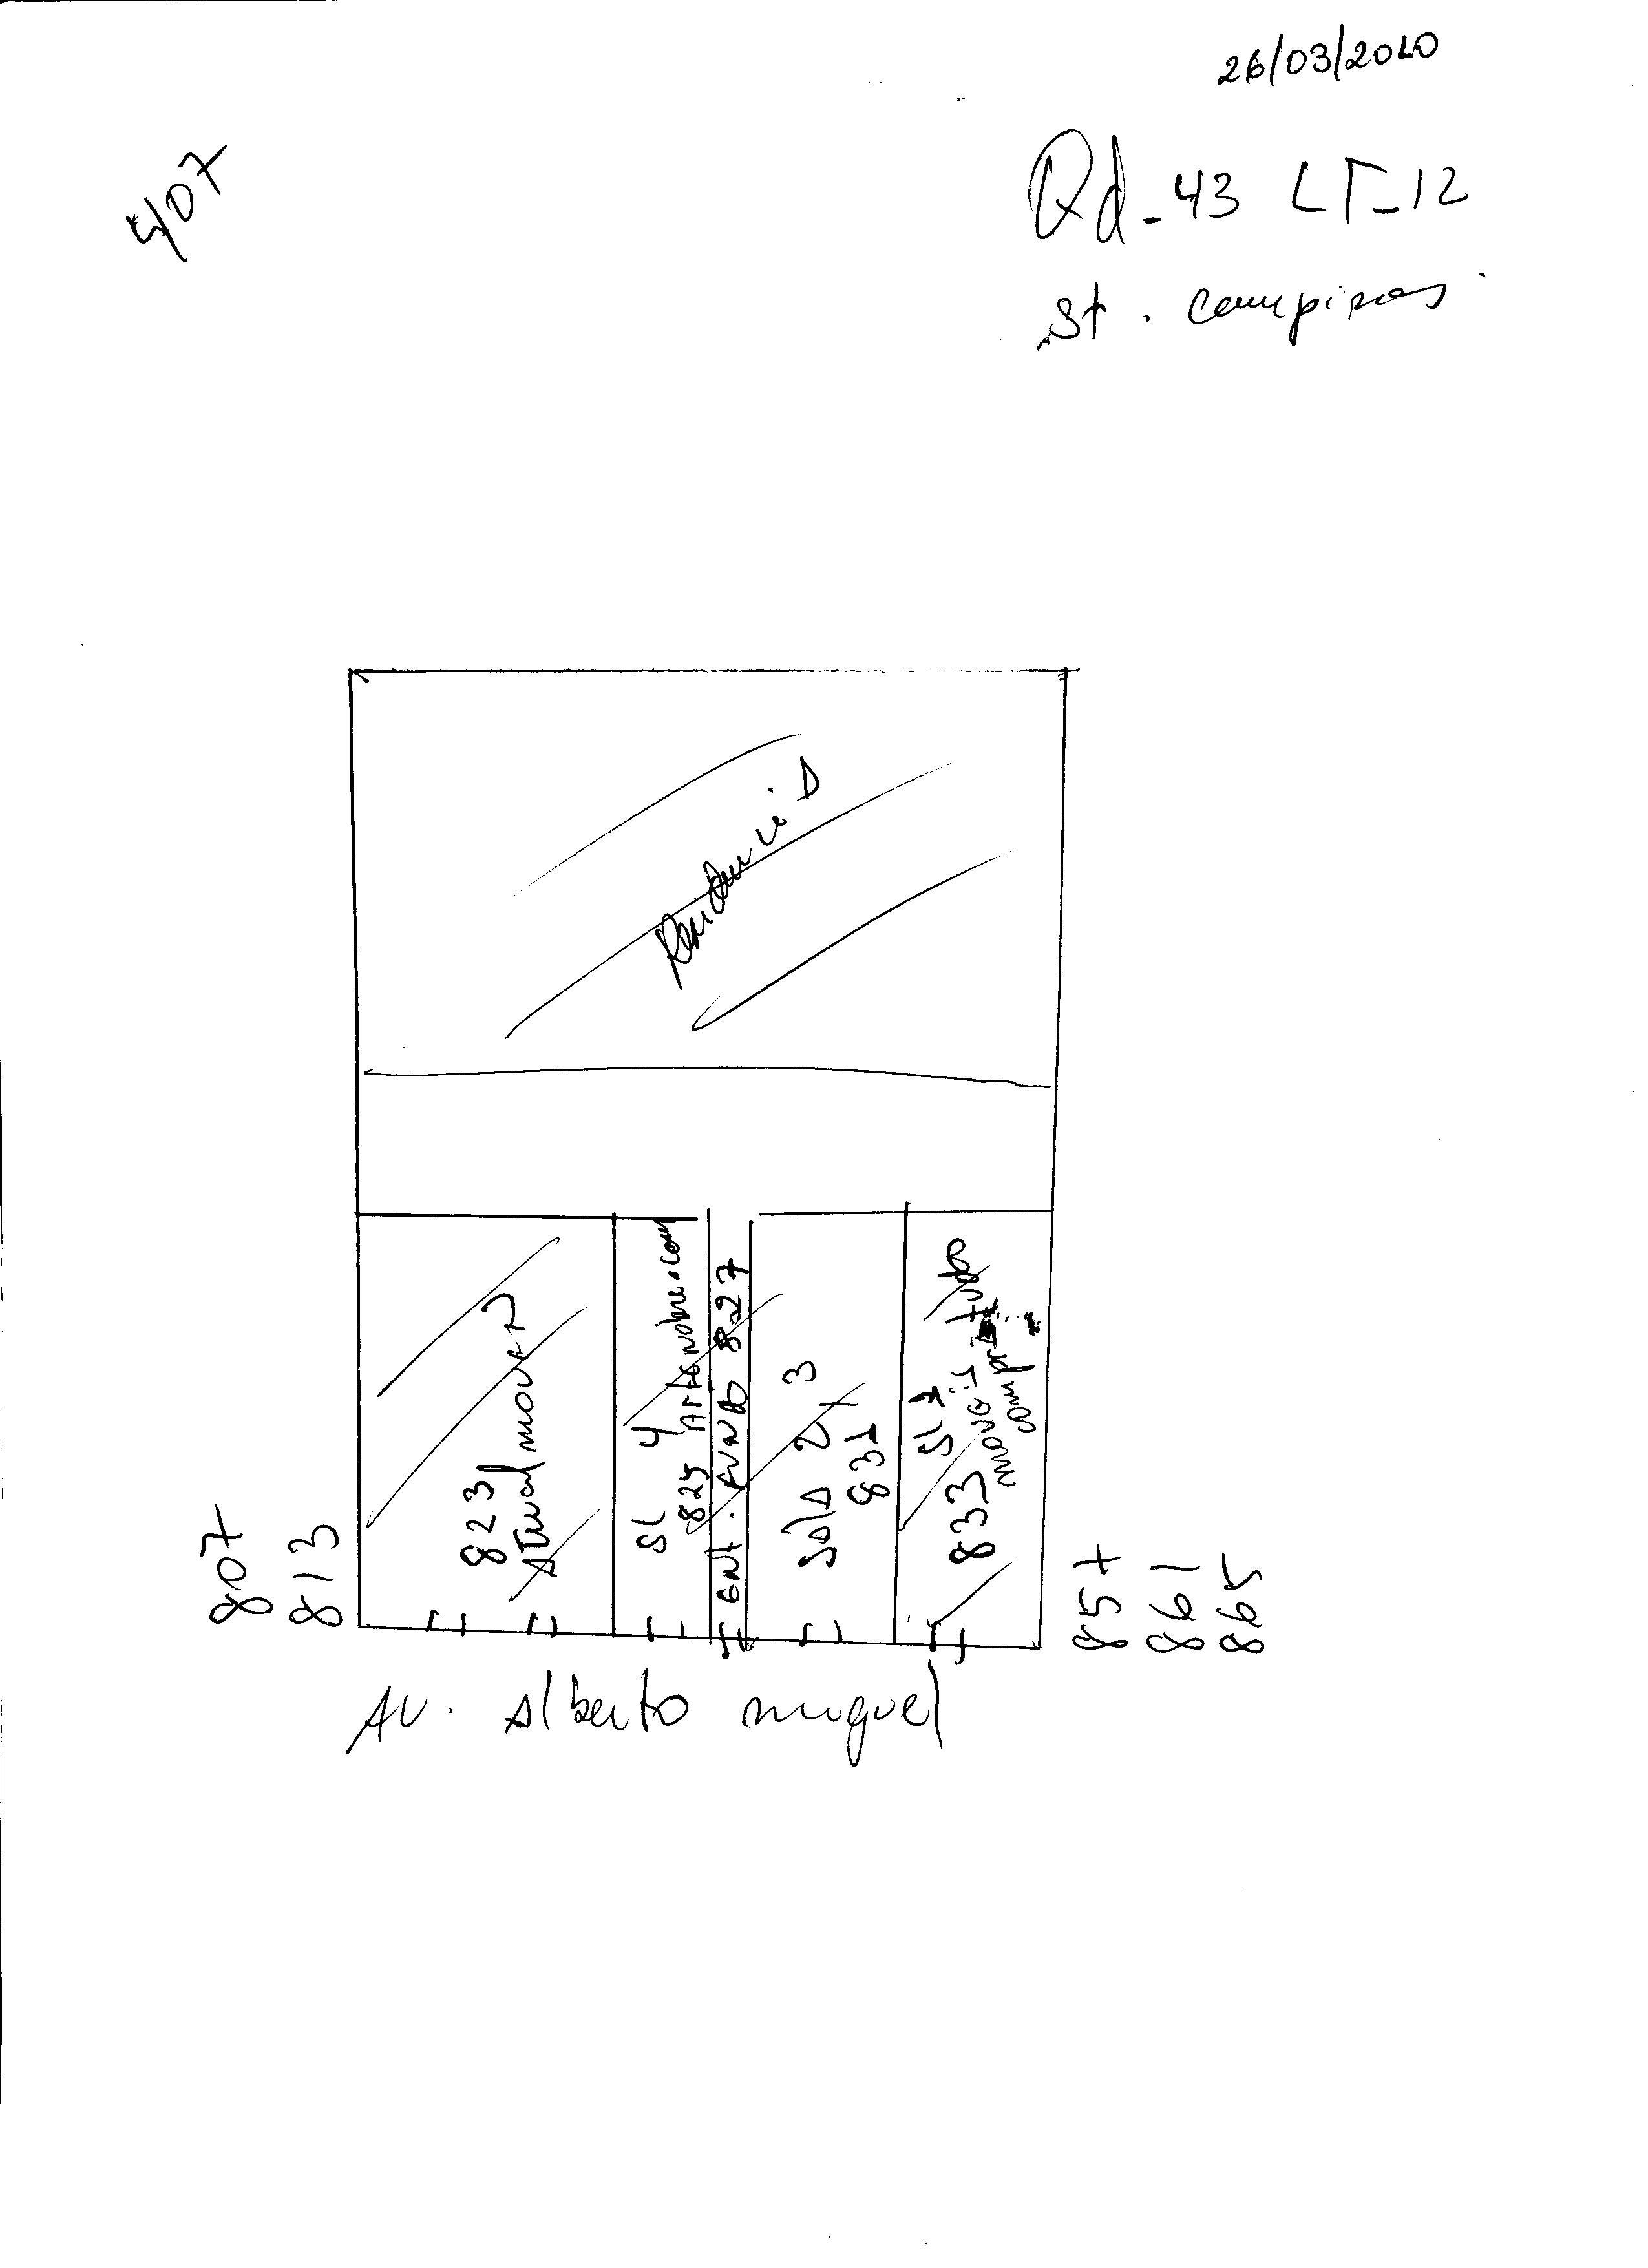 26/03/2010
407
Qd-43 LT-12
St. campinas
Residencia
823
Atual move
SL 4
825 Artenobre.com
ENT. FUNDO 827
SALA 2 e 3
831
SL 1
833 moveis
compra tudo
807
813
857
861
865
AV. Alberto miguel